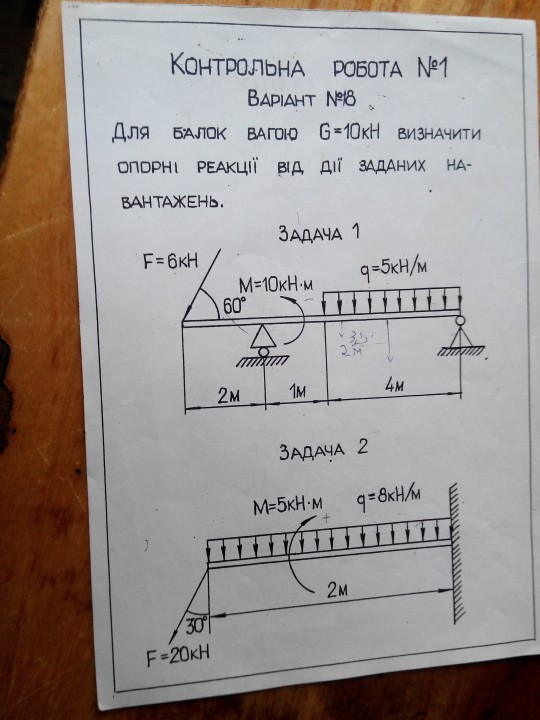 КОНТРОЛЬНА РОБОТА №1
ВАРІАНТ №18
ДЛЯ БАЛОК ВАГОЮ G=10кН ВИЗНАЧИТИ
ОПОРНІ РЕАКЦІЇ ВІД ДІЇ ЗАДАНИХ НА-
ВАНТАЖЕНЬ.
ЗАДАЧА 1
F=6кН
M=10кН·м
q=5кН/м
60°
2м
2м
1м
4м
ЗАДАЧА 2
M=5кН·м
q=8кН/м
2м
30°
F=20кН